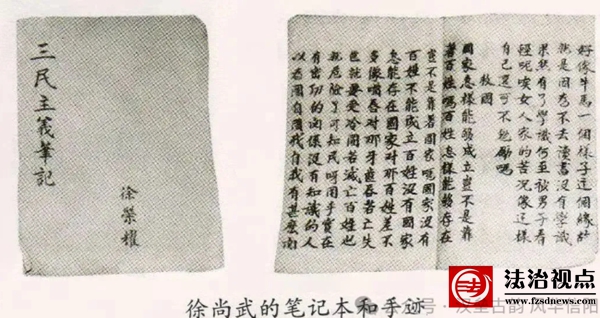 三民主義筆記
徐榮耀
好像牛馬一個樣子這個緣故
就是因為不去讀書沒有學識
果我有了學識何至被男子看
輕呢唉女人家的苦况像這樣
自己還可不勉勵嗎
救國
國家怎樣能够成立豈不是靠
著百姓嗎百姓怎樣能够存在
豈不是靠著國家呢國家沒有
百姓不能成立百姓沒有國家
怎能存在國家對那百姓差不
多像嘴唇對那牙齒唇若亡失
齒就要受冷國若滅亡百姓也
就危險了可知民呵國乎實在
有密切的関係沒有知識的人
以為國自國我自我有甚麼
徐尚武的笔记本和手迹
风华信阳
法治视点
www.fzsdnews.com